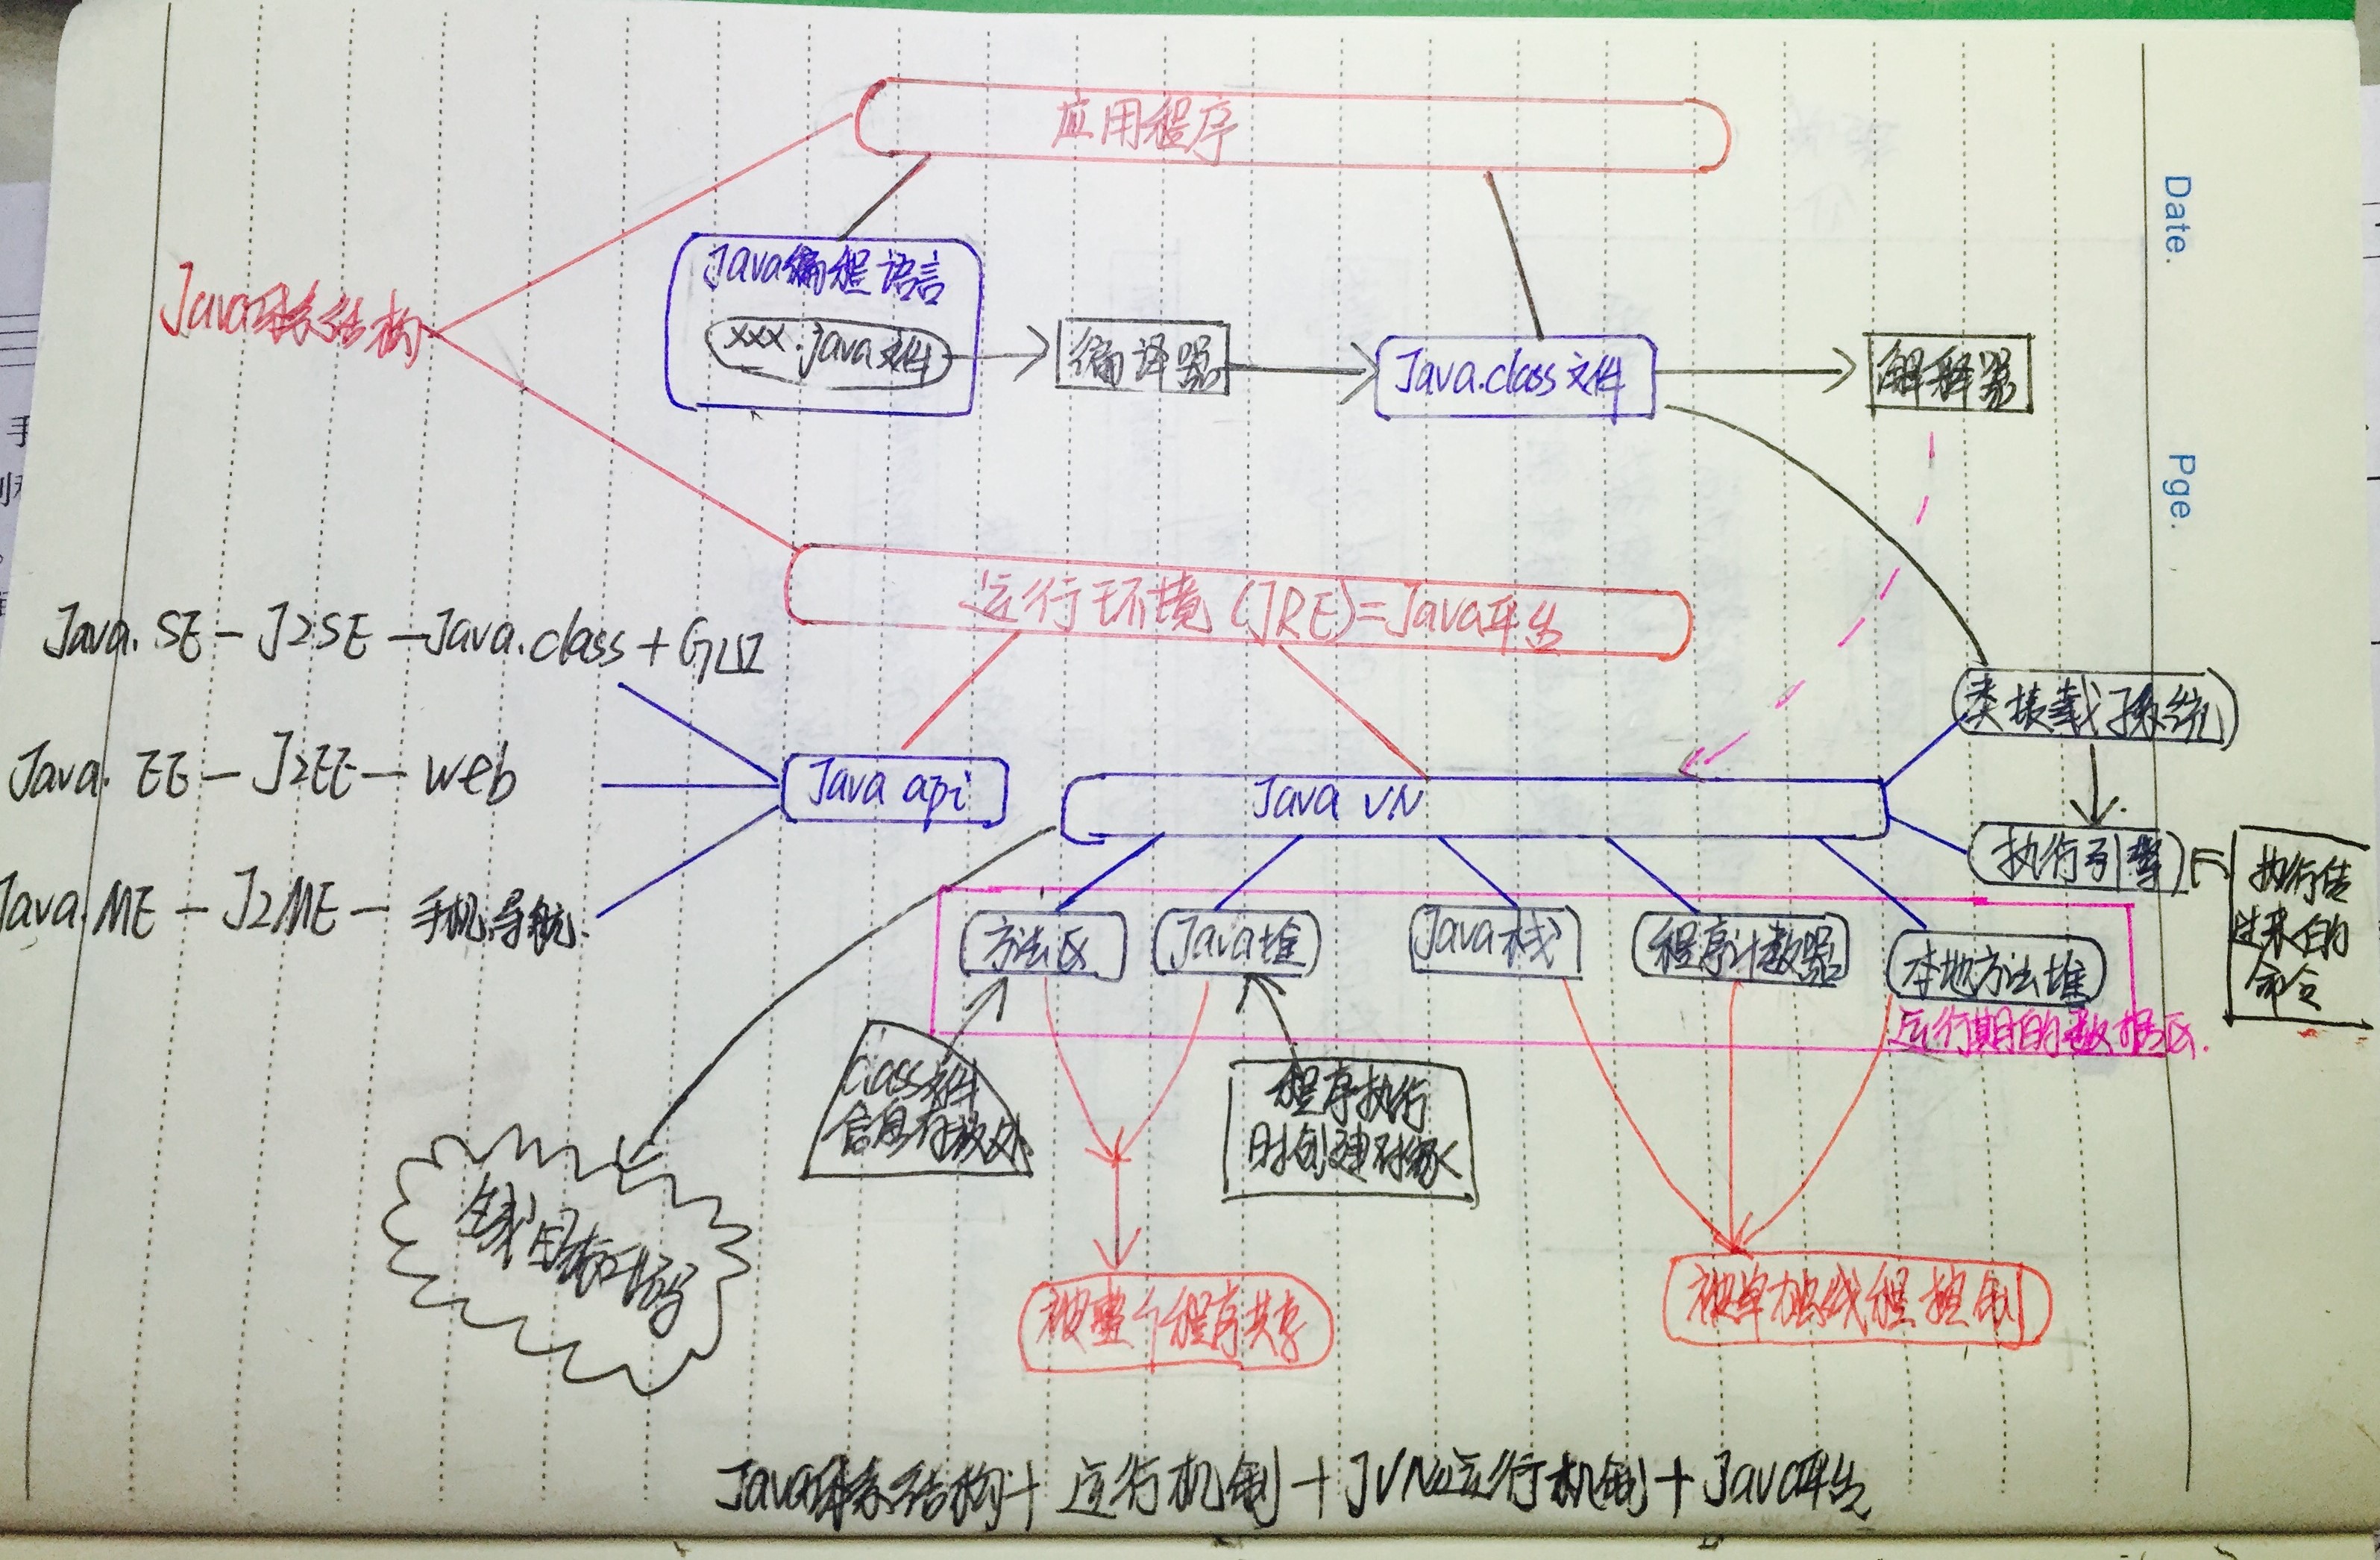 应用程序
Date.
Java编程语言
xxx.java文件
编译器
Java.class文件
解释器
Java体系结构
Pge.
运行环境(JRE)=Java平台
Java.SE-J2SE-Java.class+GUI
类装载子系统
Java.EE-J2EE-web
Java api
Java VM
执行引擎
执行传
过来的
命令
Java.ME-J2ME-手机.导航.
方法区
Java堆
Java栈
程序计数器
本地方法堆
运行期的数据区.
class文件
信息存放处
程序执行
时创建对象
生成目标代码
被整个程序共享
被单独线程控制
Java体系结构+运行机制+JVM运行机制+Java平台